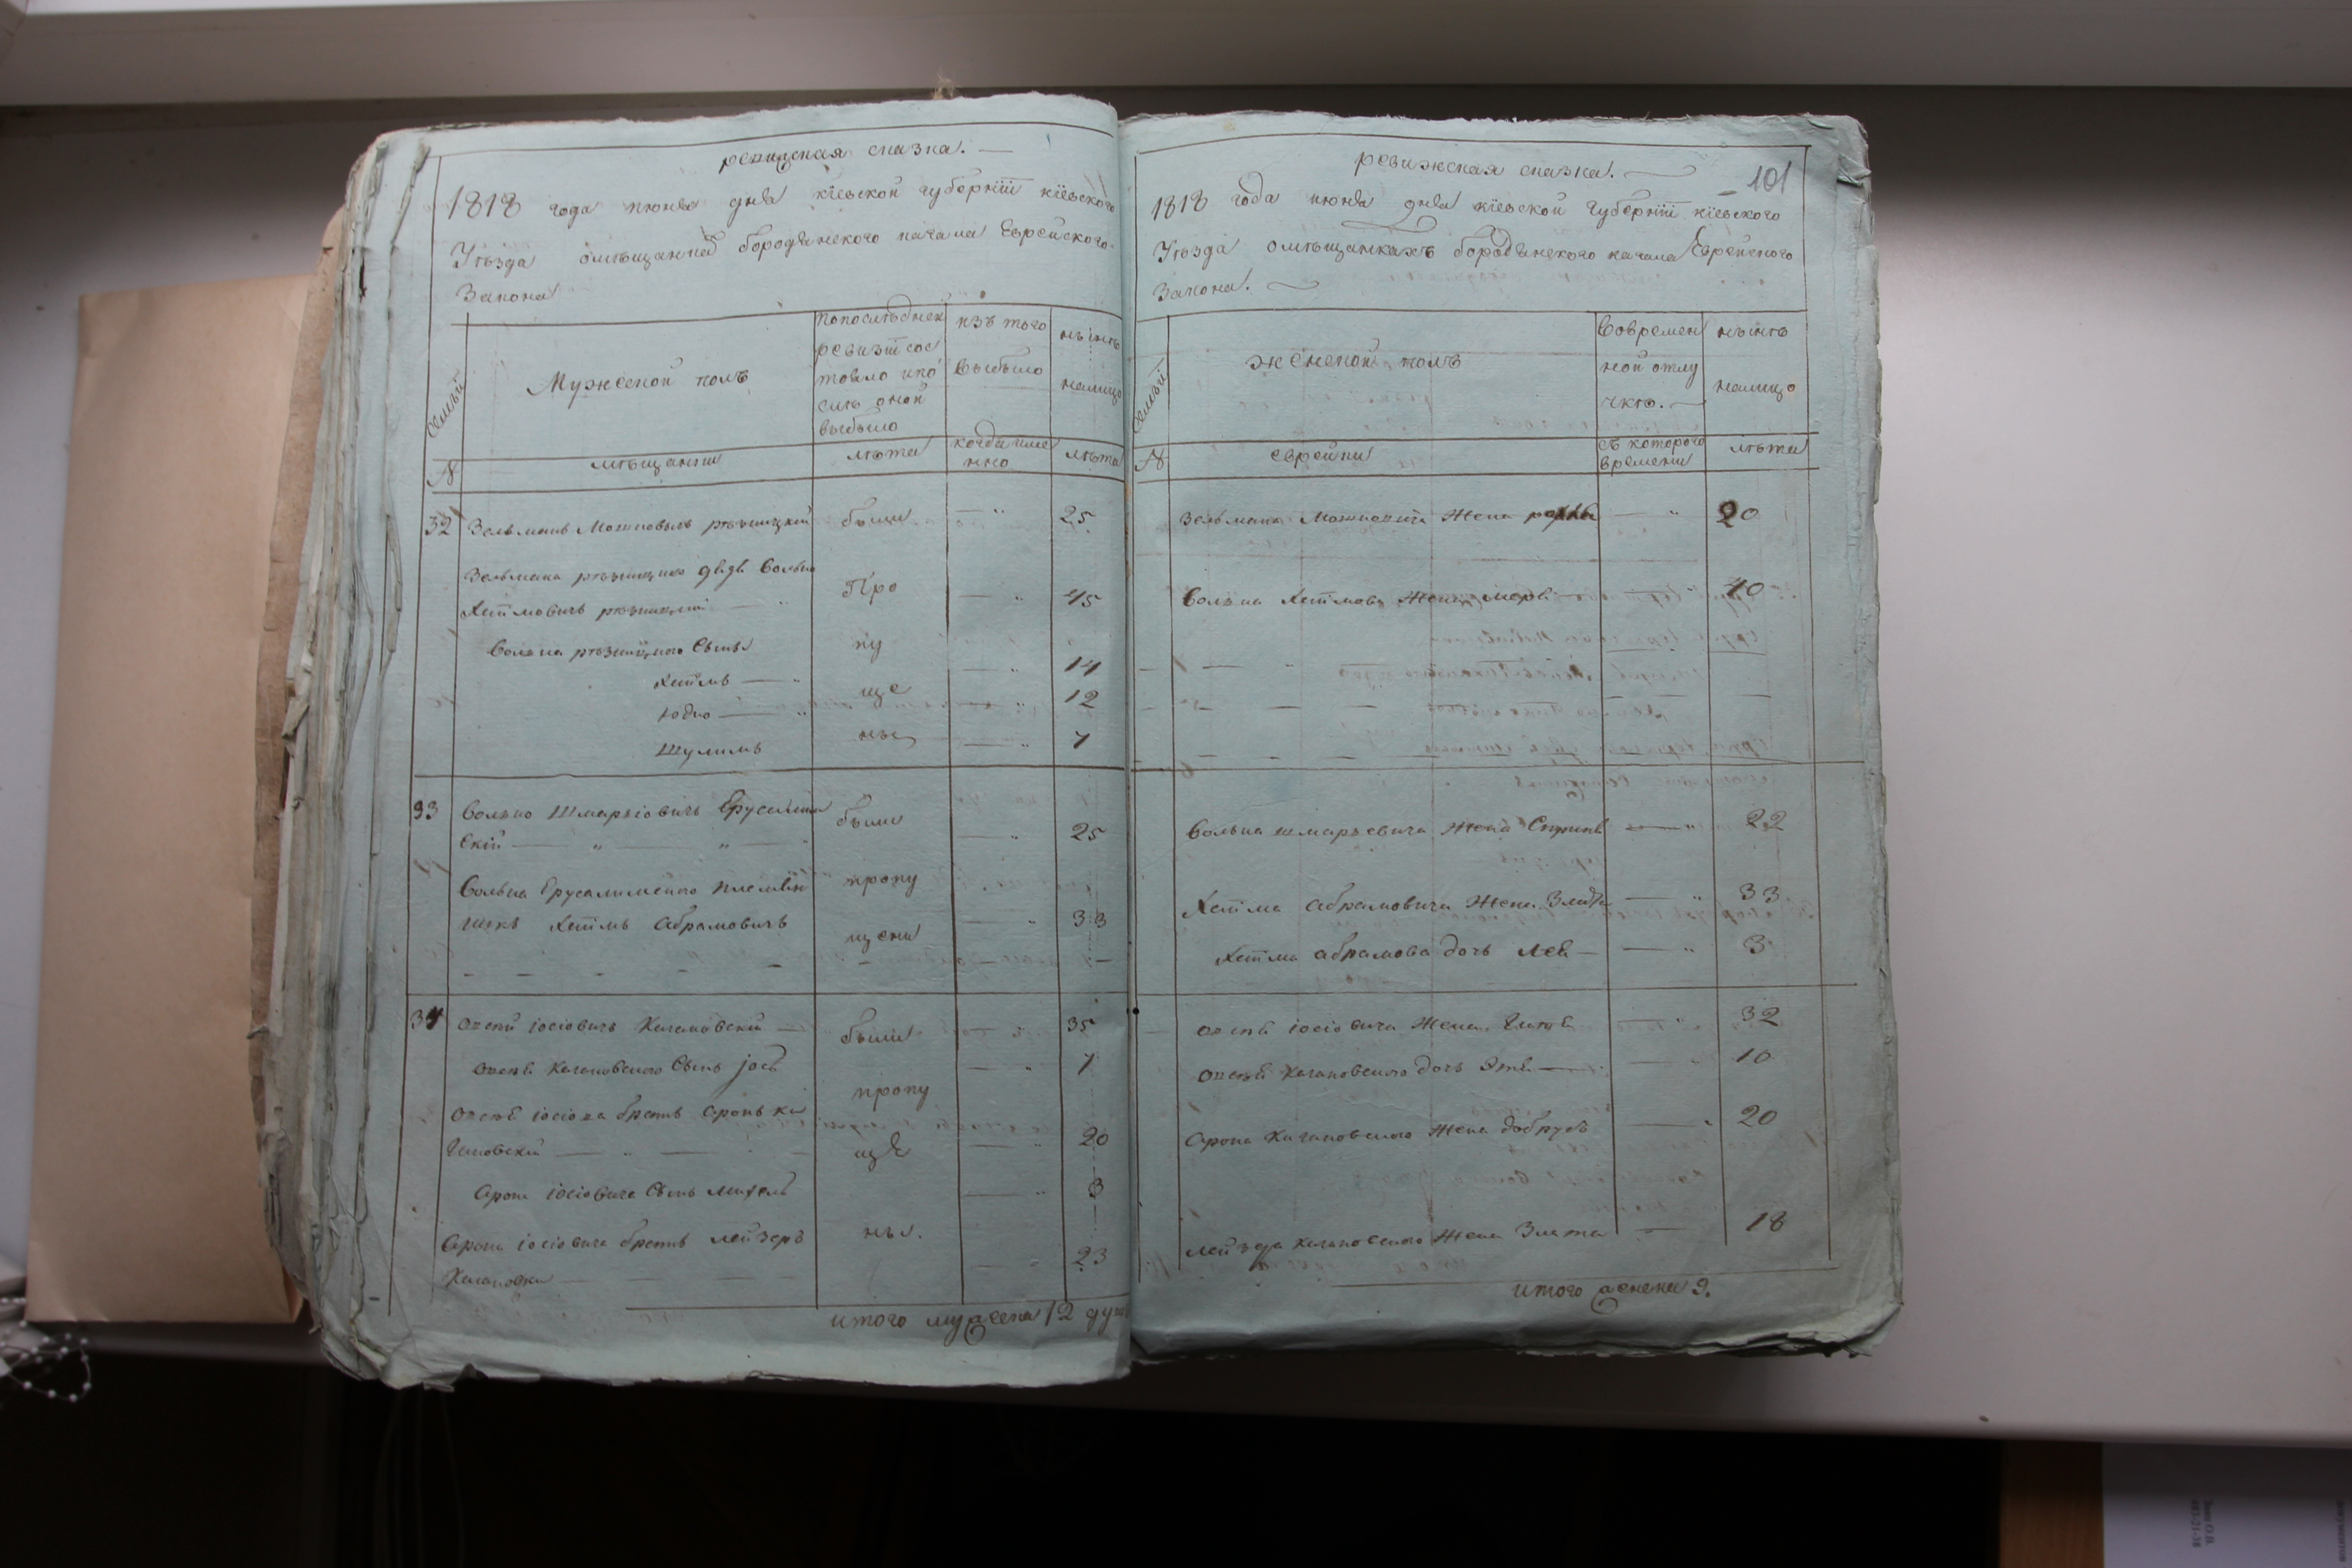 ревизская сказка. —
1818 года июня дня кіевской губерніи кіевского
Уѣзда омѣщанехъ бородянского кагала Еврейского
Закона
Семьи
Мужеской полъ
попоследней
ревизіи сос
тояло ипо
слѣ оной
выбыло
изъ того
выбыло
нынѣ
налицо
№
мѣщанин
лѣта
когда име
нно
лѣта
32 Зельманъ Мошковычъ рѣзницкій были 25
Зельмана рѣзницкого дядя Волько
Хаимовичъ рѣзницкій Про 45
Волька рѣзницкого Сынья пу
Хаимъ 14
ще
Юдко 12
Шулимъ ны 7
33 Волько Шмарьіовичъ Ерусалим
Скій были 25
Волька Ерусалимского племян пропу
никъ Хаимъ Абрамовичъ 33
щены
34 іосіовичъ Кагановскій были 35
Кагановского Сынъ 7
пропу
братъ Аронъ ка
гановскій ще 20
Арона іосіовича Сынъ 3
Арона іосіовича братъ лейзеръ ны. 23
Кагановски
итого мужеска 12 душ
ревижская сказка. — 101
1818 года июня дня кіевской губерніи кіевского
Уѣзда омѣщанкахъ бородянского кагала Еврейского
Закона.
Семьи
женской полъ
Вовремен
ной отлу
чкѣ. —
нынѣ
налицо
№
еврейки
съ которого
времени
лѣта
Зельмана Мошковича Жена 20
Волька Хаимова Жена 40
Волька шмарьевича Жена 22
Хаима Абрамовича Жена 33
Хаима абрамова дочь Лея 3
іосіовича Жена 32
Кагановского дочь 10
Арона Кагановского Жена добрусь 20
Лейзера Кагановского Жена Злата 18
итого женска 9.